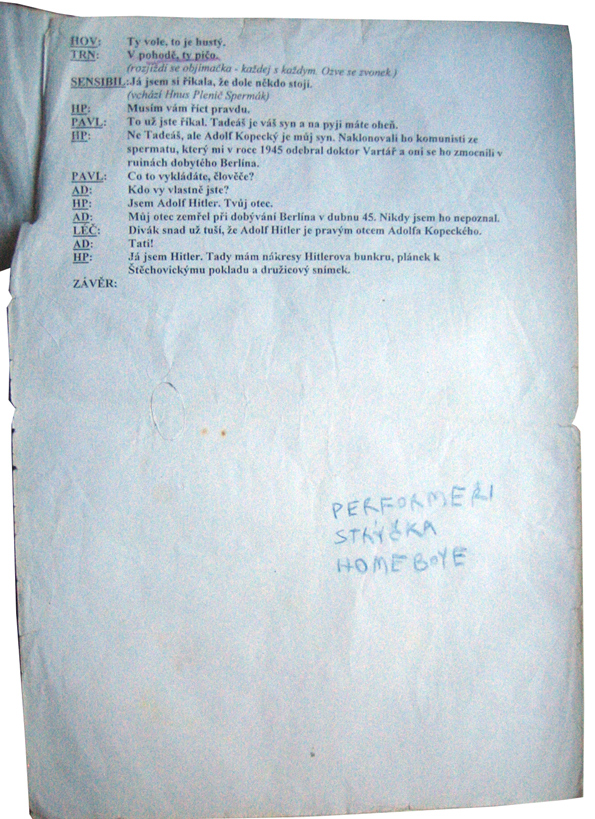 HOV: Ty vole, to je hustý.
TRN: V pohodě, ty pičo.
(rozjíždí se objímačka - každej s každym. Ozve se zvonek.)
SENSIBIL: Já jsem si říkala, že dole někdo stojí.
(vchází Hnus Plenič Spermák)
HP: Musím vám říct pravdu.
PAVL: To už jste říkal. Tadeáš je váš syn a na pyji máte oheň.
HP: Ne Tadeáš, ale Adolf Kopecký je můj syn. Naklonovali ho komunisti ze
spermatu, který mi v roce 1945 odebral doktor Vartář a oni se ho zmocnili v
ruinách dobytého Berlína.
PAVL: Co to vykládáte, člověče?
AD: Kdo vy vlastně jste?
HP: Jsem Adolf Hitler. Tvůj otec.
AD: Můj otec zemřel při dobývání Berlína v dubnu 45. Nikdy jsem ho nepoznal.
LÉČ: Divák snad už tuší, že Adolf Hitler je pravým otcem Adolfa Kopeckého.
AD: Tati!
HP: Já jsem Hitler. Tady mám nákresy Hitlerova bunkru, plánek k
Štěchovickýmu pokladu a družicový snímek.
ZÁVĚR:
PERFORMEŘI
STRÝČKA
HOMEBOYE